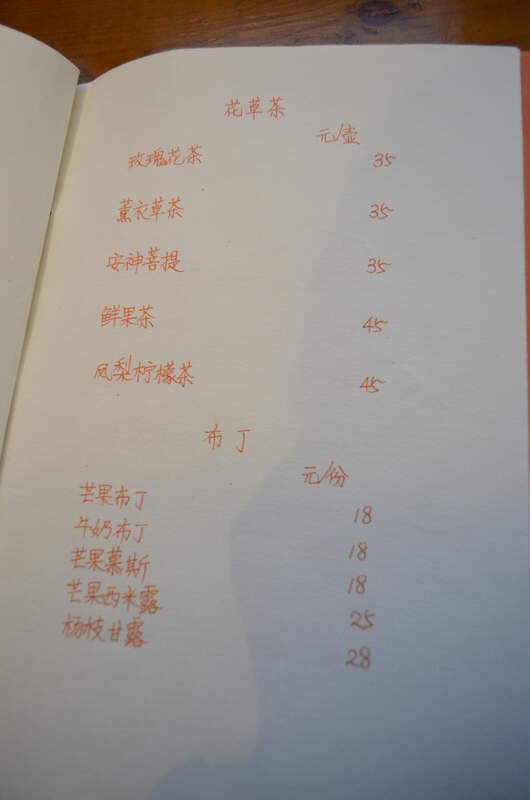 花草茶
元/壶
玫瑰花茶 35
薰衣草茶 35
安神菩提 35
鲜果茶 45
凤梨柠檬茶 45
布丁
元/份
芒果布丁 18
牛奶布丁 18
芒果慕斯 18
芒果西米露 25
杨枝甘露 28